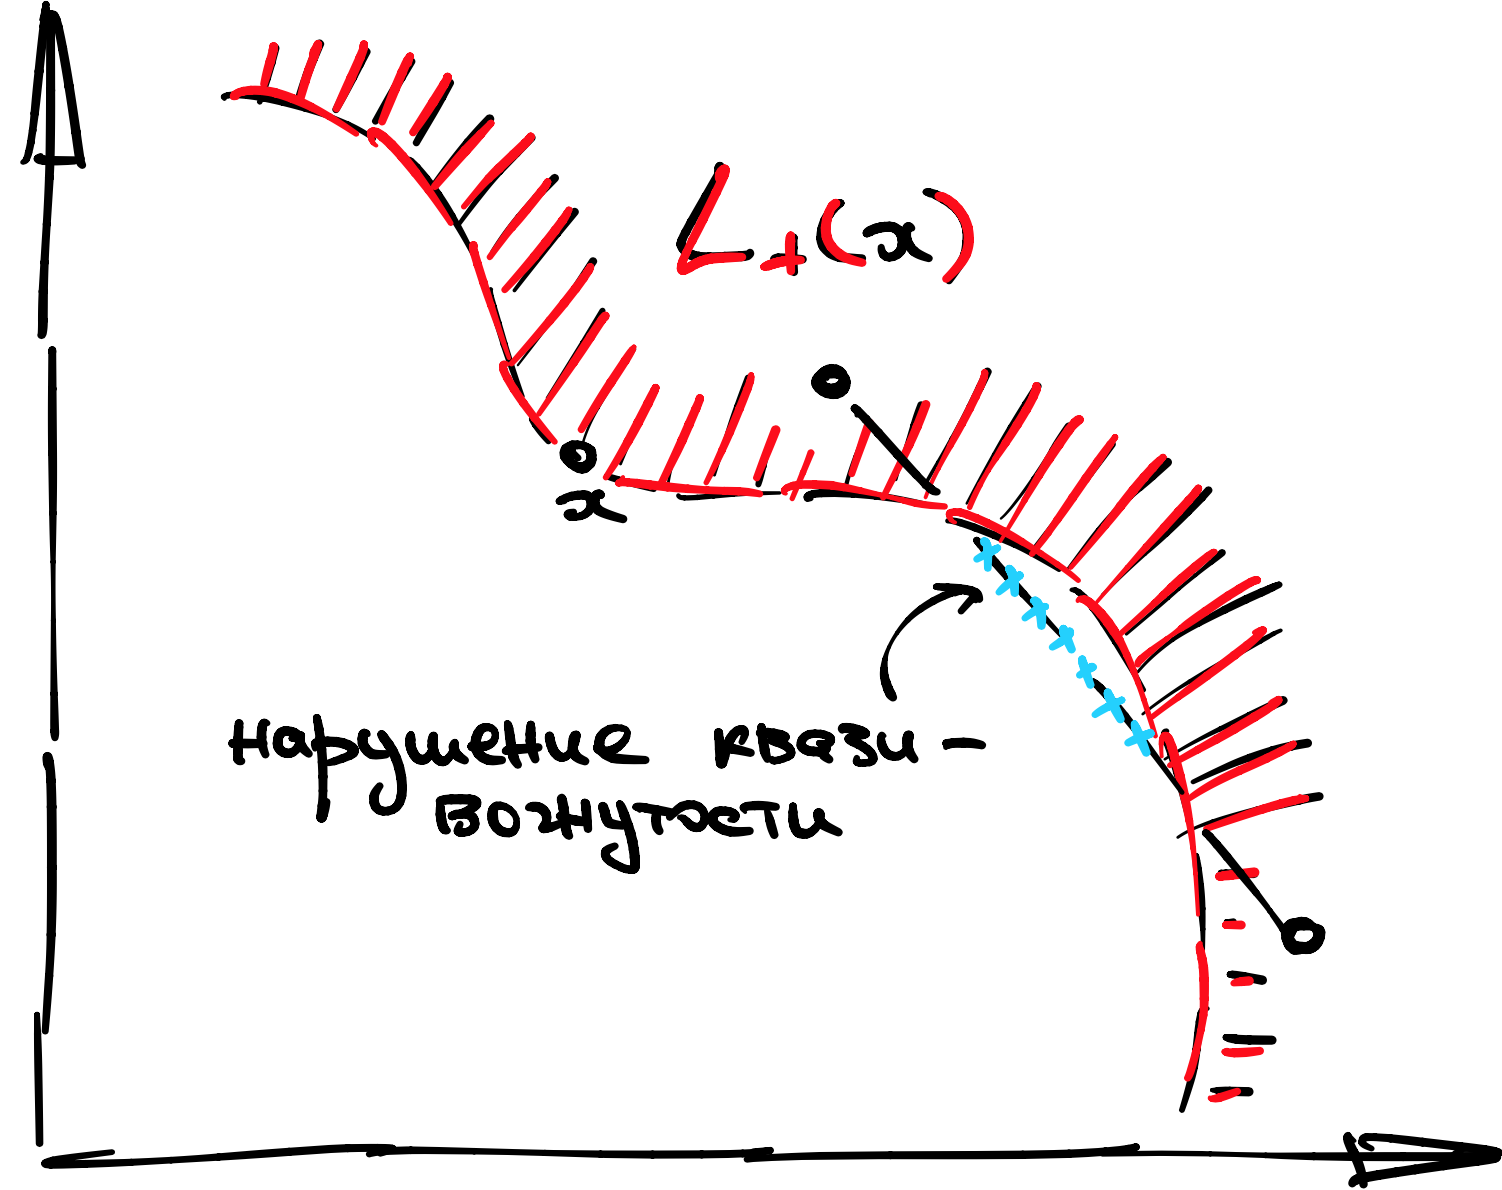 L₊(x)
x
нарушение квази-
вогнутости